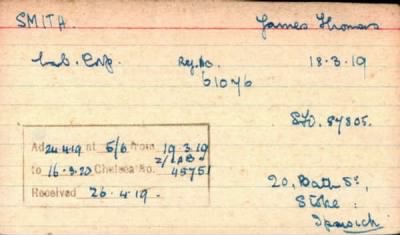 SMITH. James Thomas
Lab. Corp. Reg. No. 18.3.19
61046
S/O. 87805.
Ad 24.4.19 at 5/6 from 19.3.19
2/LAB
to 16.3.20 Chelsea No. 45751
Received 26.4.19.
20, Bath St,
Stoke,
Ipswich